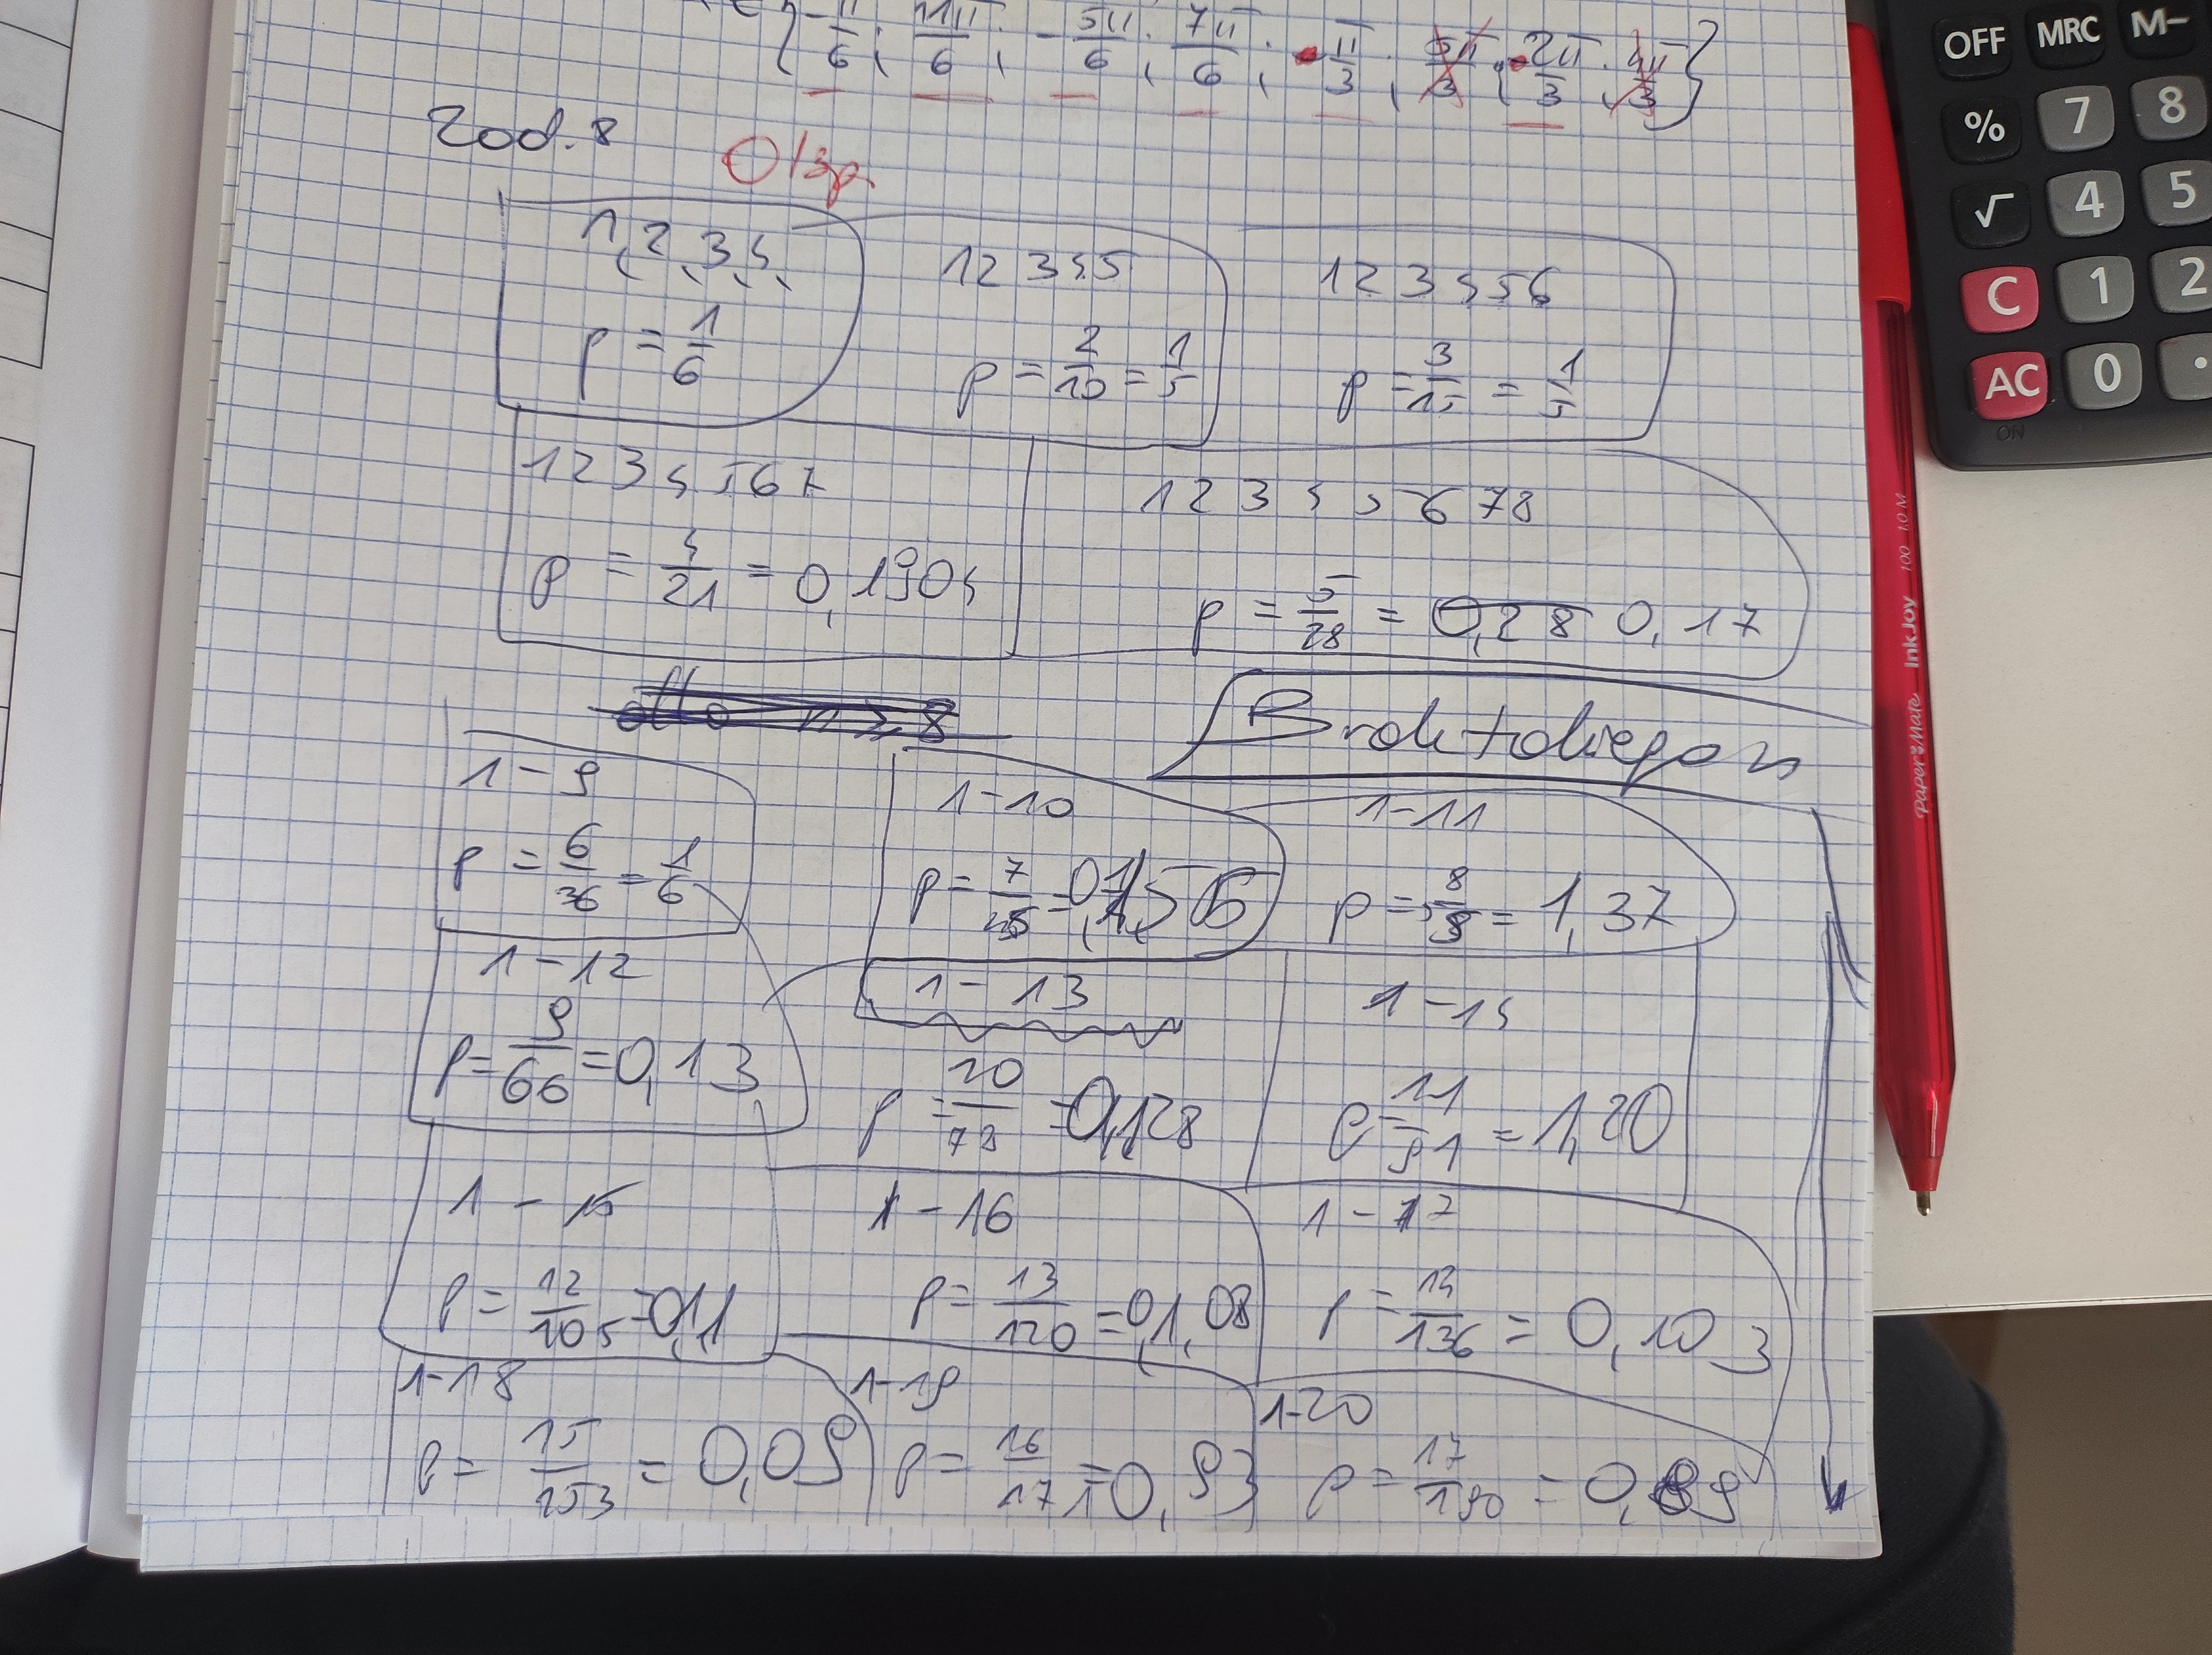 {-π/6; 11π/6; -5π/6; 7π/6; π/3; 5π/3; 2π/3; 4π/3}
Zad. 8
0/3p
1, 2, 3, 4,
p = 1/6
1 2 3 4 5
p = 2/10 = 1/5
1 2 3 4 5 6
p = 3/15 = 1/5
1 2 3 4 5 6 7
p = 4/21 = 0,1904
1 2 3 4 5 6 7 8
p = 5/28 = 0,28 0,17
dla n ≥ 8
1-9
p = 6/36 = 1/6
1-10
p = 7/45 = 0,156
1-11
p = 8/55 = 1,37
1-12
p = 9/66 = 0,13
1-13
p = 10/78 = 0,128
1-14
p = 11/91 = 1,20
1-15
p = 12/105 = 0,11
1-16
p = 13/120 = 0,1,08
1-17
p = 14/136 = 0,103
1-18
p = 15/153 = 0,09
1-19
p = 16/171 = 0,93
1-20
p = 17/190 = 0,89
OFF MRC M−
% 7 8
√ 4 5
C 1 2
AC 0 .
ON
Paper Mate InkJoy 100 1.0 M